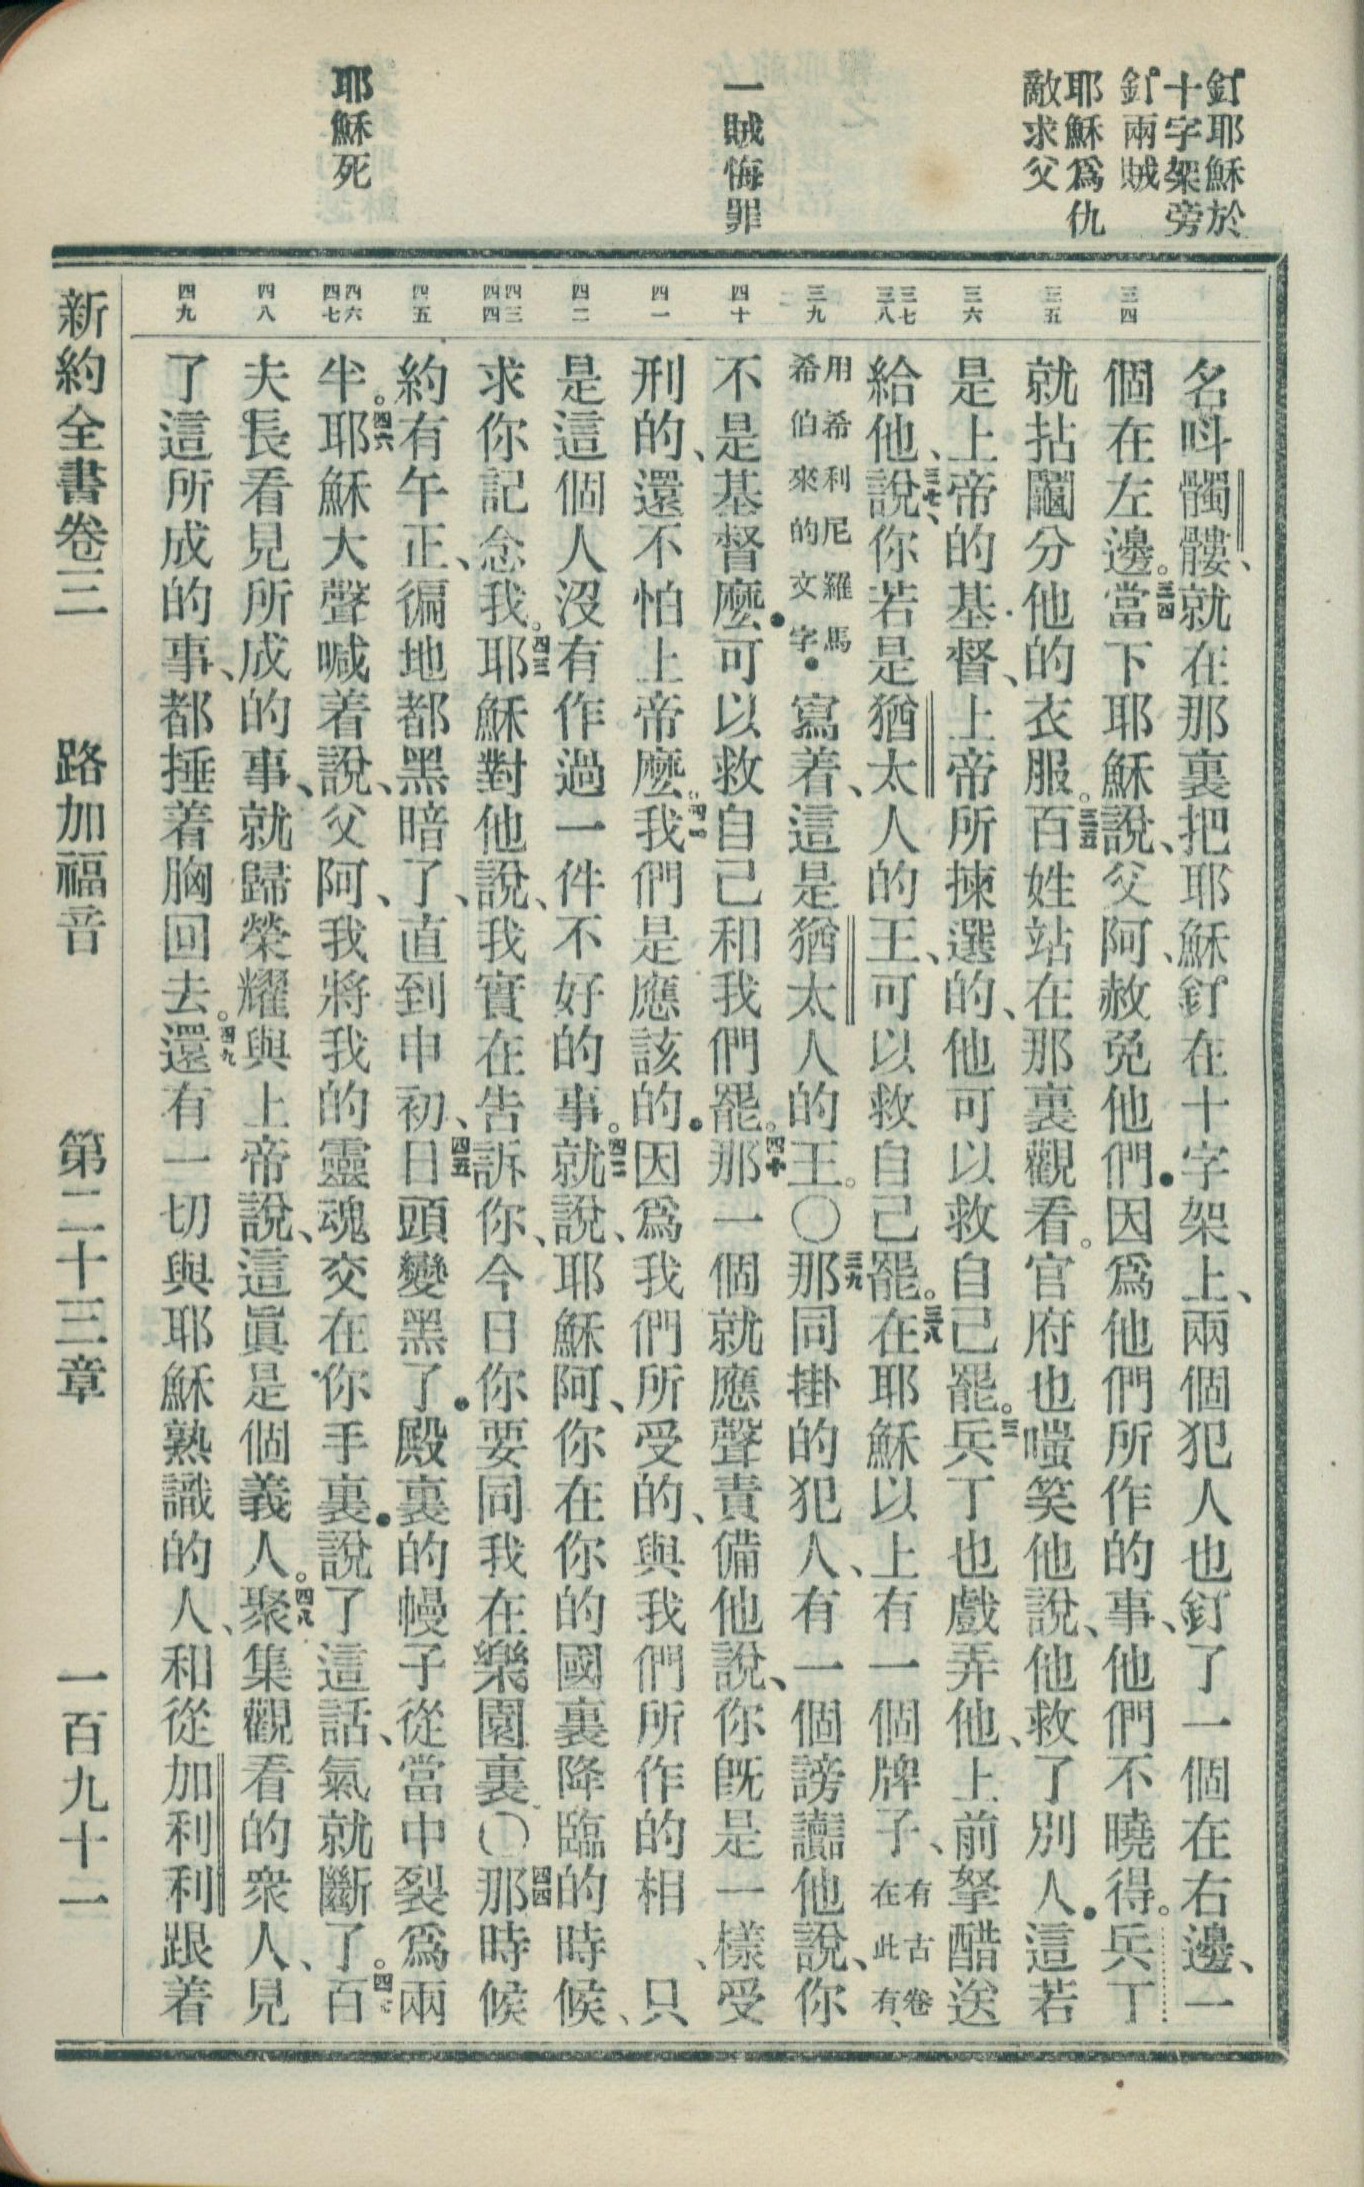 釘耶穌於
十字架旁
釘兩賊
耶穌爲仇
敵求父
一賊悔罪
耶穌死
三四
三五
三六
三七
三八
三九
四十
四一
四二
四三
四四
四五
四六
四七
四八
四九
名呌髑髏、就在那裏把耶穌釘在十字架上、兩個犯人也釘了一個在右邊、一
個在左邊。三四當下耶穌說、父阿、赦免他們・因爲他們所作的事、他們不曉得。兵丁
就拈鬮分他的衣服。三五百姓站在那裏觀看。官府也嗤笑他說、他救了別人・這若
是上帝的基督、上帝所揀選的、他可以救自己罷。三六兵丁也戲弄他、上前拏醋送
給他、三七說、你若是猶太人的王、可以救自己罷。三八在耶穌以上有一個牌子、有古卷在此有、
用希利尼羅馬希伯來的文字・寫着、這是猶太人的王。〇三九那同掛的犯人、有一個謗讟他說、你
不是基督麽・可以救自己和我們罷。四十那一個就應聲責備他說、你旣是一樣受
刑的、還不怕上帝麽。四一我們是應該的・因爲我們所受的、與我們所作的相、只
是這個人沒有作過一件不好的事。四二就說、耶穌阿、你在你的國裏降臨的時候、
求你記念我。四三耶穌對他說、我實在告訴你、今日你要同我在樂園裏〇四四那時候
約有午正、徧地都黑暗了、直到申初、四五日頭變黑了・殿裏的幔子從當中裂爲兩
半。四六耶穌大聲喊着說、父阿、我將我的靈魂交在你手裏・說了這話、氣就斷了。四七百
夫長看見所成的事、就歸榮耀與上帝說、這眞是個義人。四八聚集觀看的衆人、見
了這所成的事、都捶着胸回去。四九還有一切與耶穌熟識的人、和從加利利跟着
新約全書卷三　路加福音　第二十三章　一百九十一